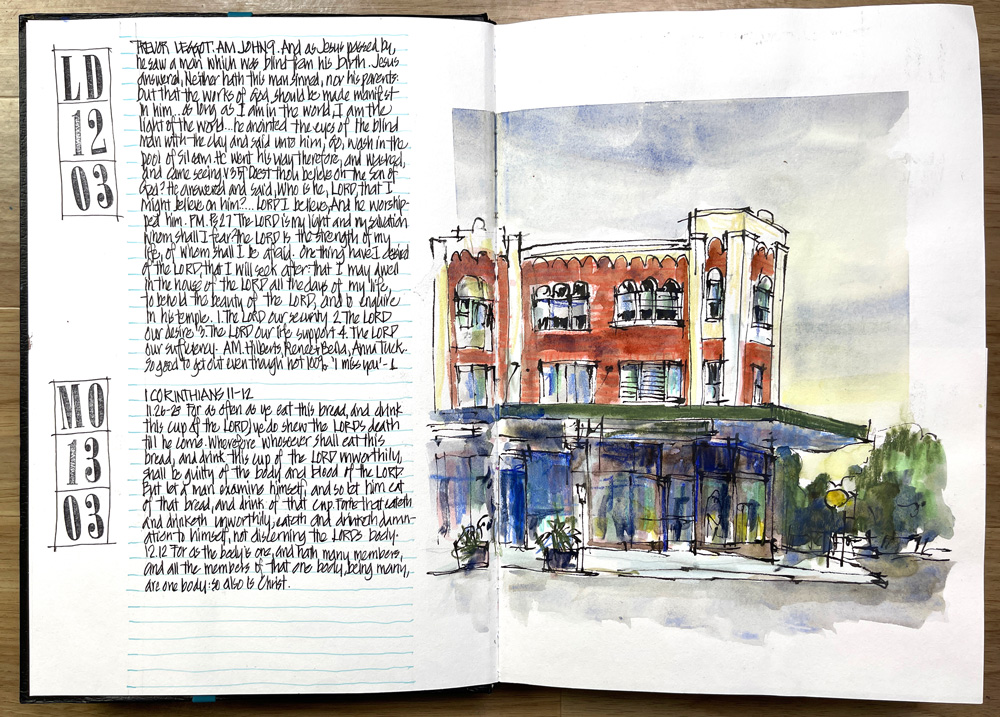 LD
12
03
TREVOR LEGGOT. AM JOHN 9. And as Jesus passed by,
he saw a man which was blind from his birth. Jesus
answered, Neither hath this man sinned, nor his parents:
but that the works of God should be made manifest
in him... as long as I am in the world, I am the
light of the world... he anointed the eyes of the blind
man with the clay and said unto him, Go, wash in the
pool of Siloam. He went his way therefore, and washed,
and came seeing. V35 Dost thou believe on the Son of
God? He answered and said, Who is he, LORD, that I
might believe on him?... LORD I believe, And he worship-
ped him. PM. Ps 27 The LORD is my light and my salvation
whom shall I fear? the LORD is the strength of my
life, of whom shall I be afraid. One thing have I desired
of the LORD, that I will seek after: that I may dwell
in the house of the LORD all the days of my life,
to behold the beauty of the LORD, and to enquire
in his temple. 1. The LORD our security 2. The LORD
our desire 3. The LORD our life support 4. The LORD
our sufficiency. A.M. Hilberts, Renee + Bella, Anna Tuck.
So good to get out even though not 100%. 'I miss you' -
MO
13
03
1 CORINTHIANS 11-12
11.26-29 For as often as ye eat this bread, and drink
this cup of the LORD, ye do shew the LORDS death
till he come. Wherefore whosoever shall eat this
bread, and drink this cup of the LORD unworthily,
shall be guilty of the body and blood of the LORD.
But let a man examine himself, and so let him eat
of that bread, and drink of that cup. For he that eateth
and drinketh unworthily, eateth and drinketh damn-
ation to himself, not discerning the LORDS body.
12.12 For as the body is one, and hath many members,
and all the members of that one body, being many,
are one body: so also is Christ.